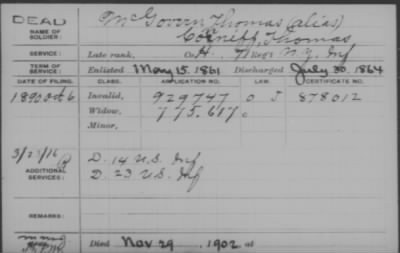 DEAD
McGovern Thomas (alias)
NAME OF SOLDIER:
Thomas
SERVICE: Late rank, Co. H. 71 Reg't N.Y. Inf
TERM OF SERVICE: Enlisted May 15. 1861 Discharged July 30. 1864
DATE OF FILING. CLASS. APPLICATION NO. LAW. CERTIFICATE NO.
1890 Oct 6 Invalid, 929747 0 J 878012
Widow, 775.617
Minor,
3/23/16
D. 14 U.S. Inf
ADDITIONAL SERVICES:
D. 23 U.S. Inf
REMARKS:
Died Nov 29, 1902, at